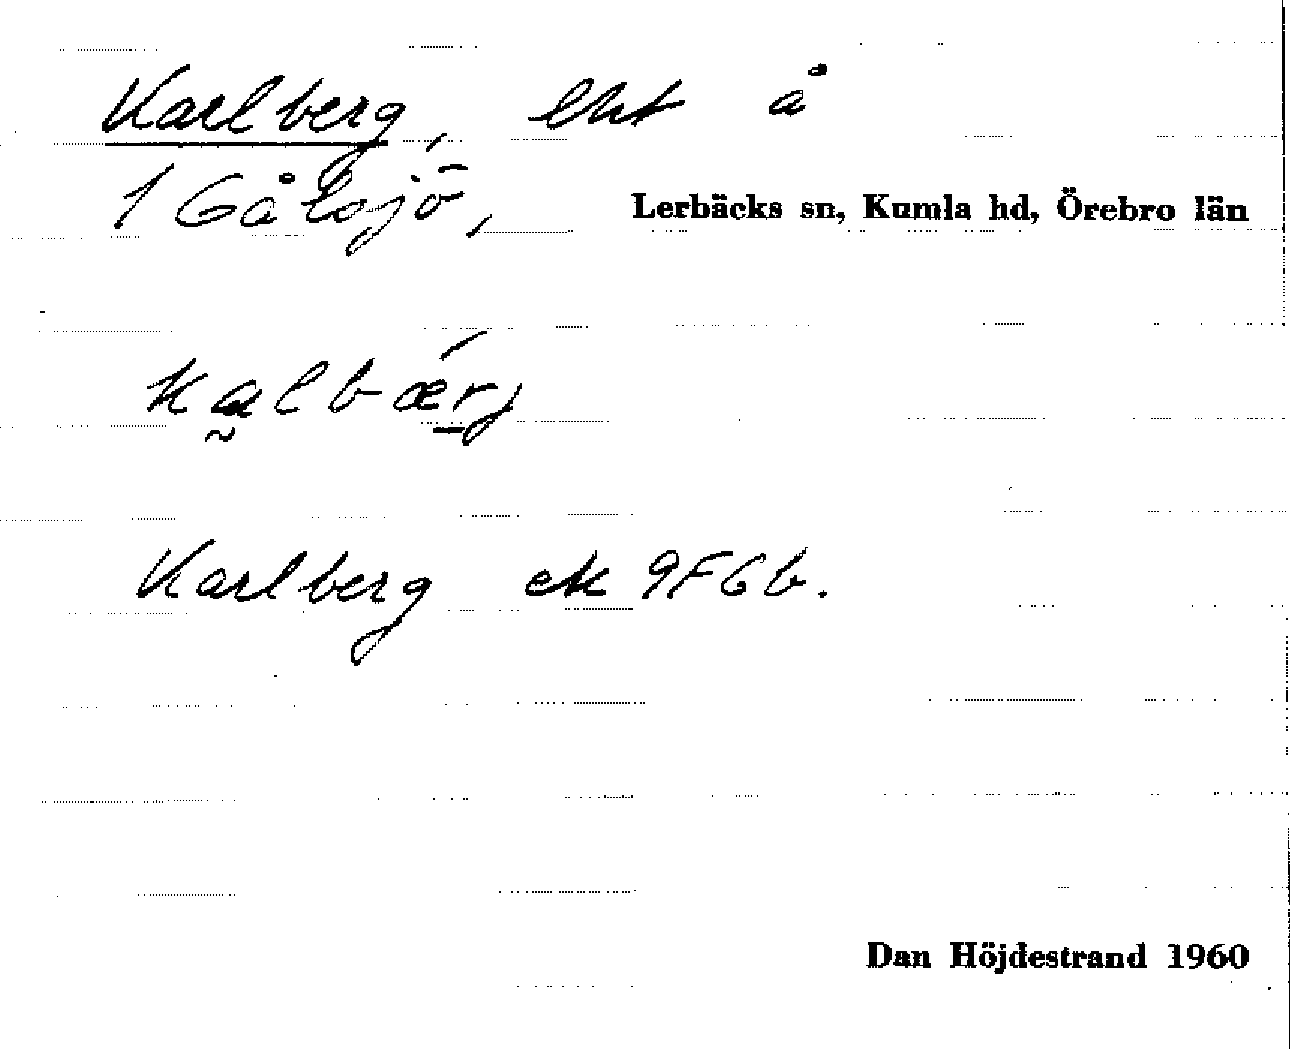 Karlberg, lht å
1 Gålsjö, Lerbäcks sn, Kumla hd, Örebro län
kalbærj
Karlberg ek 9F6b.
Dan Höjdestrand 1960